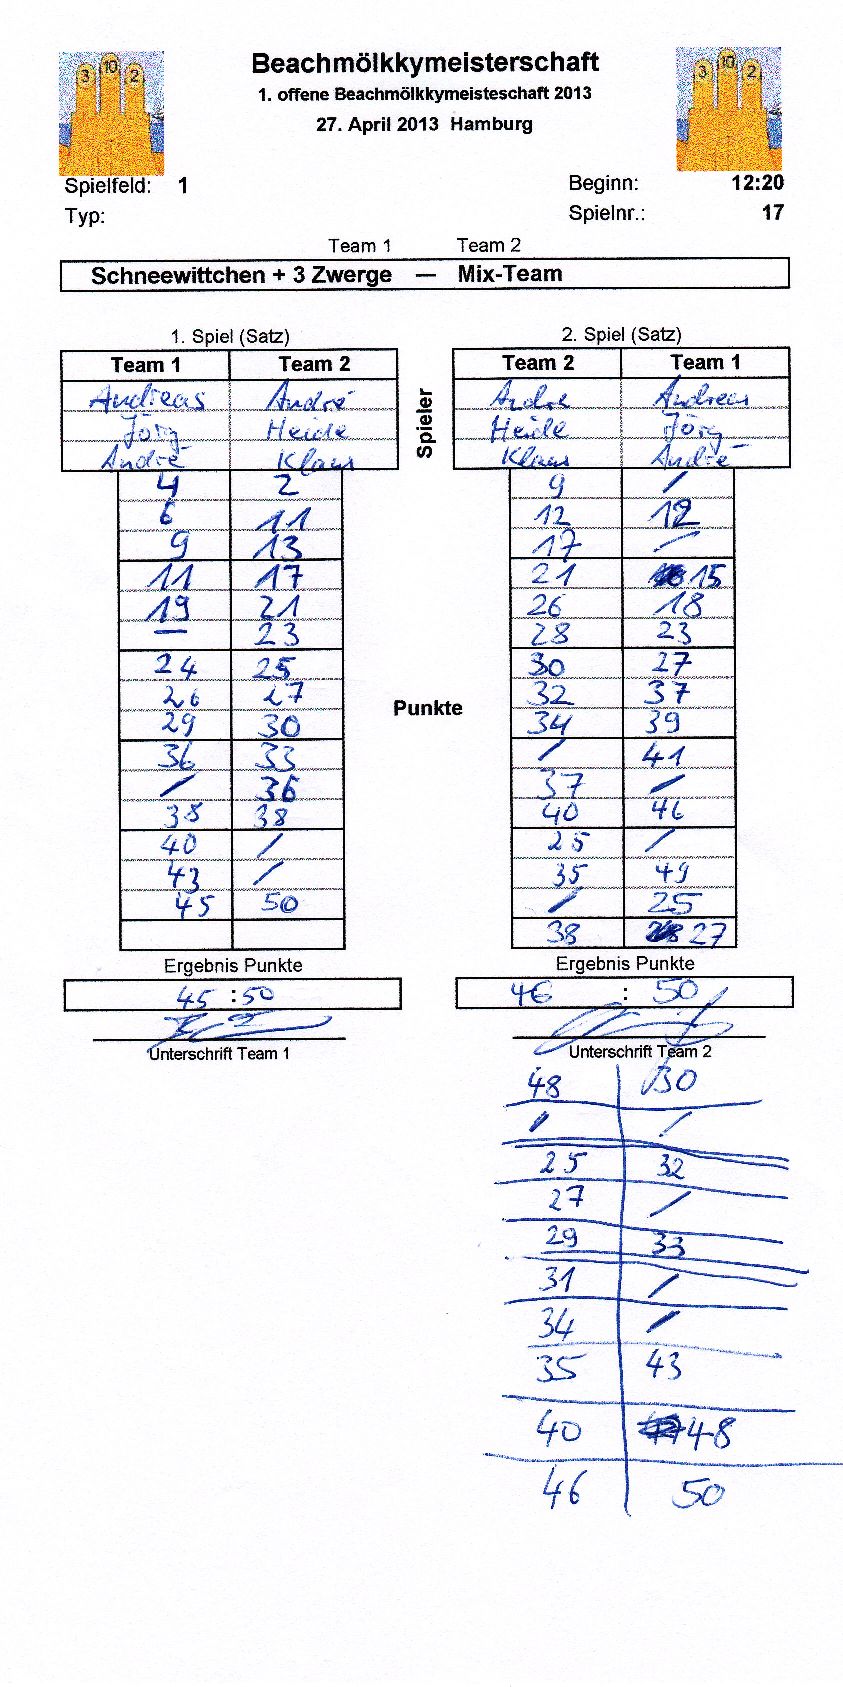 Beachmölkkymeisterschaft
1. offene Beachmölkkymeisteschaft 2013
27. April 2013 Hamburg
3 10 2
3 10 2
Spielfeld: 1 Beginn: 12:20
Typ: Spielnr.: 17
Team 1 Team 2
Schneewittchen + 3 Zwerge — Mix-Team
1. Spiel (Satz) 2. Spiel (Satz)
Team 1 Team 2 Team 2 Team 1
Andreas André Andre Andreas
Jörg Heide Heide Jörg
André Klaus Klaus André
Spieler
4 2 9 /
6 11 12 12
9 13 17 /
11 17 21 15
19 21 26 18
— 23 28 23
24 25 30 27
26 27 32 37
Punkte
29 30 34 39
36 33 / 41
/ 36 37 /
38 38 40 46
40 / 25 /
43 / 35 49
45 50 / 25
38 27
Ergebnis Punkte Ergebnis Punkte
45 : 50 46 : 50
Unterschrift Team 1 Unterschrift Team 2
48 30
/ /
25 32
27 /
29 33
31 /
34 /
35 43
40 48
46 50